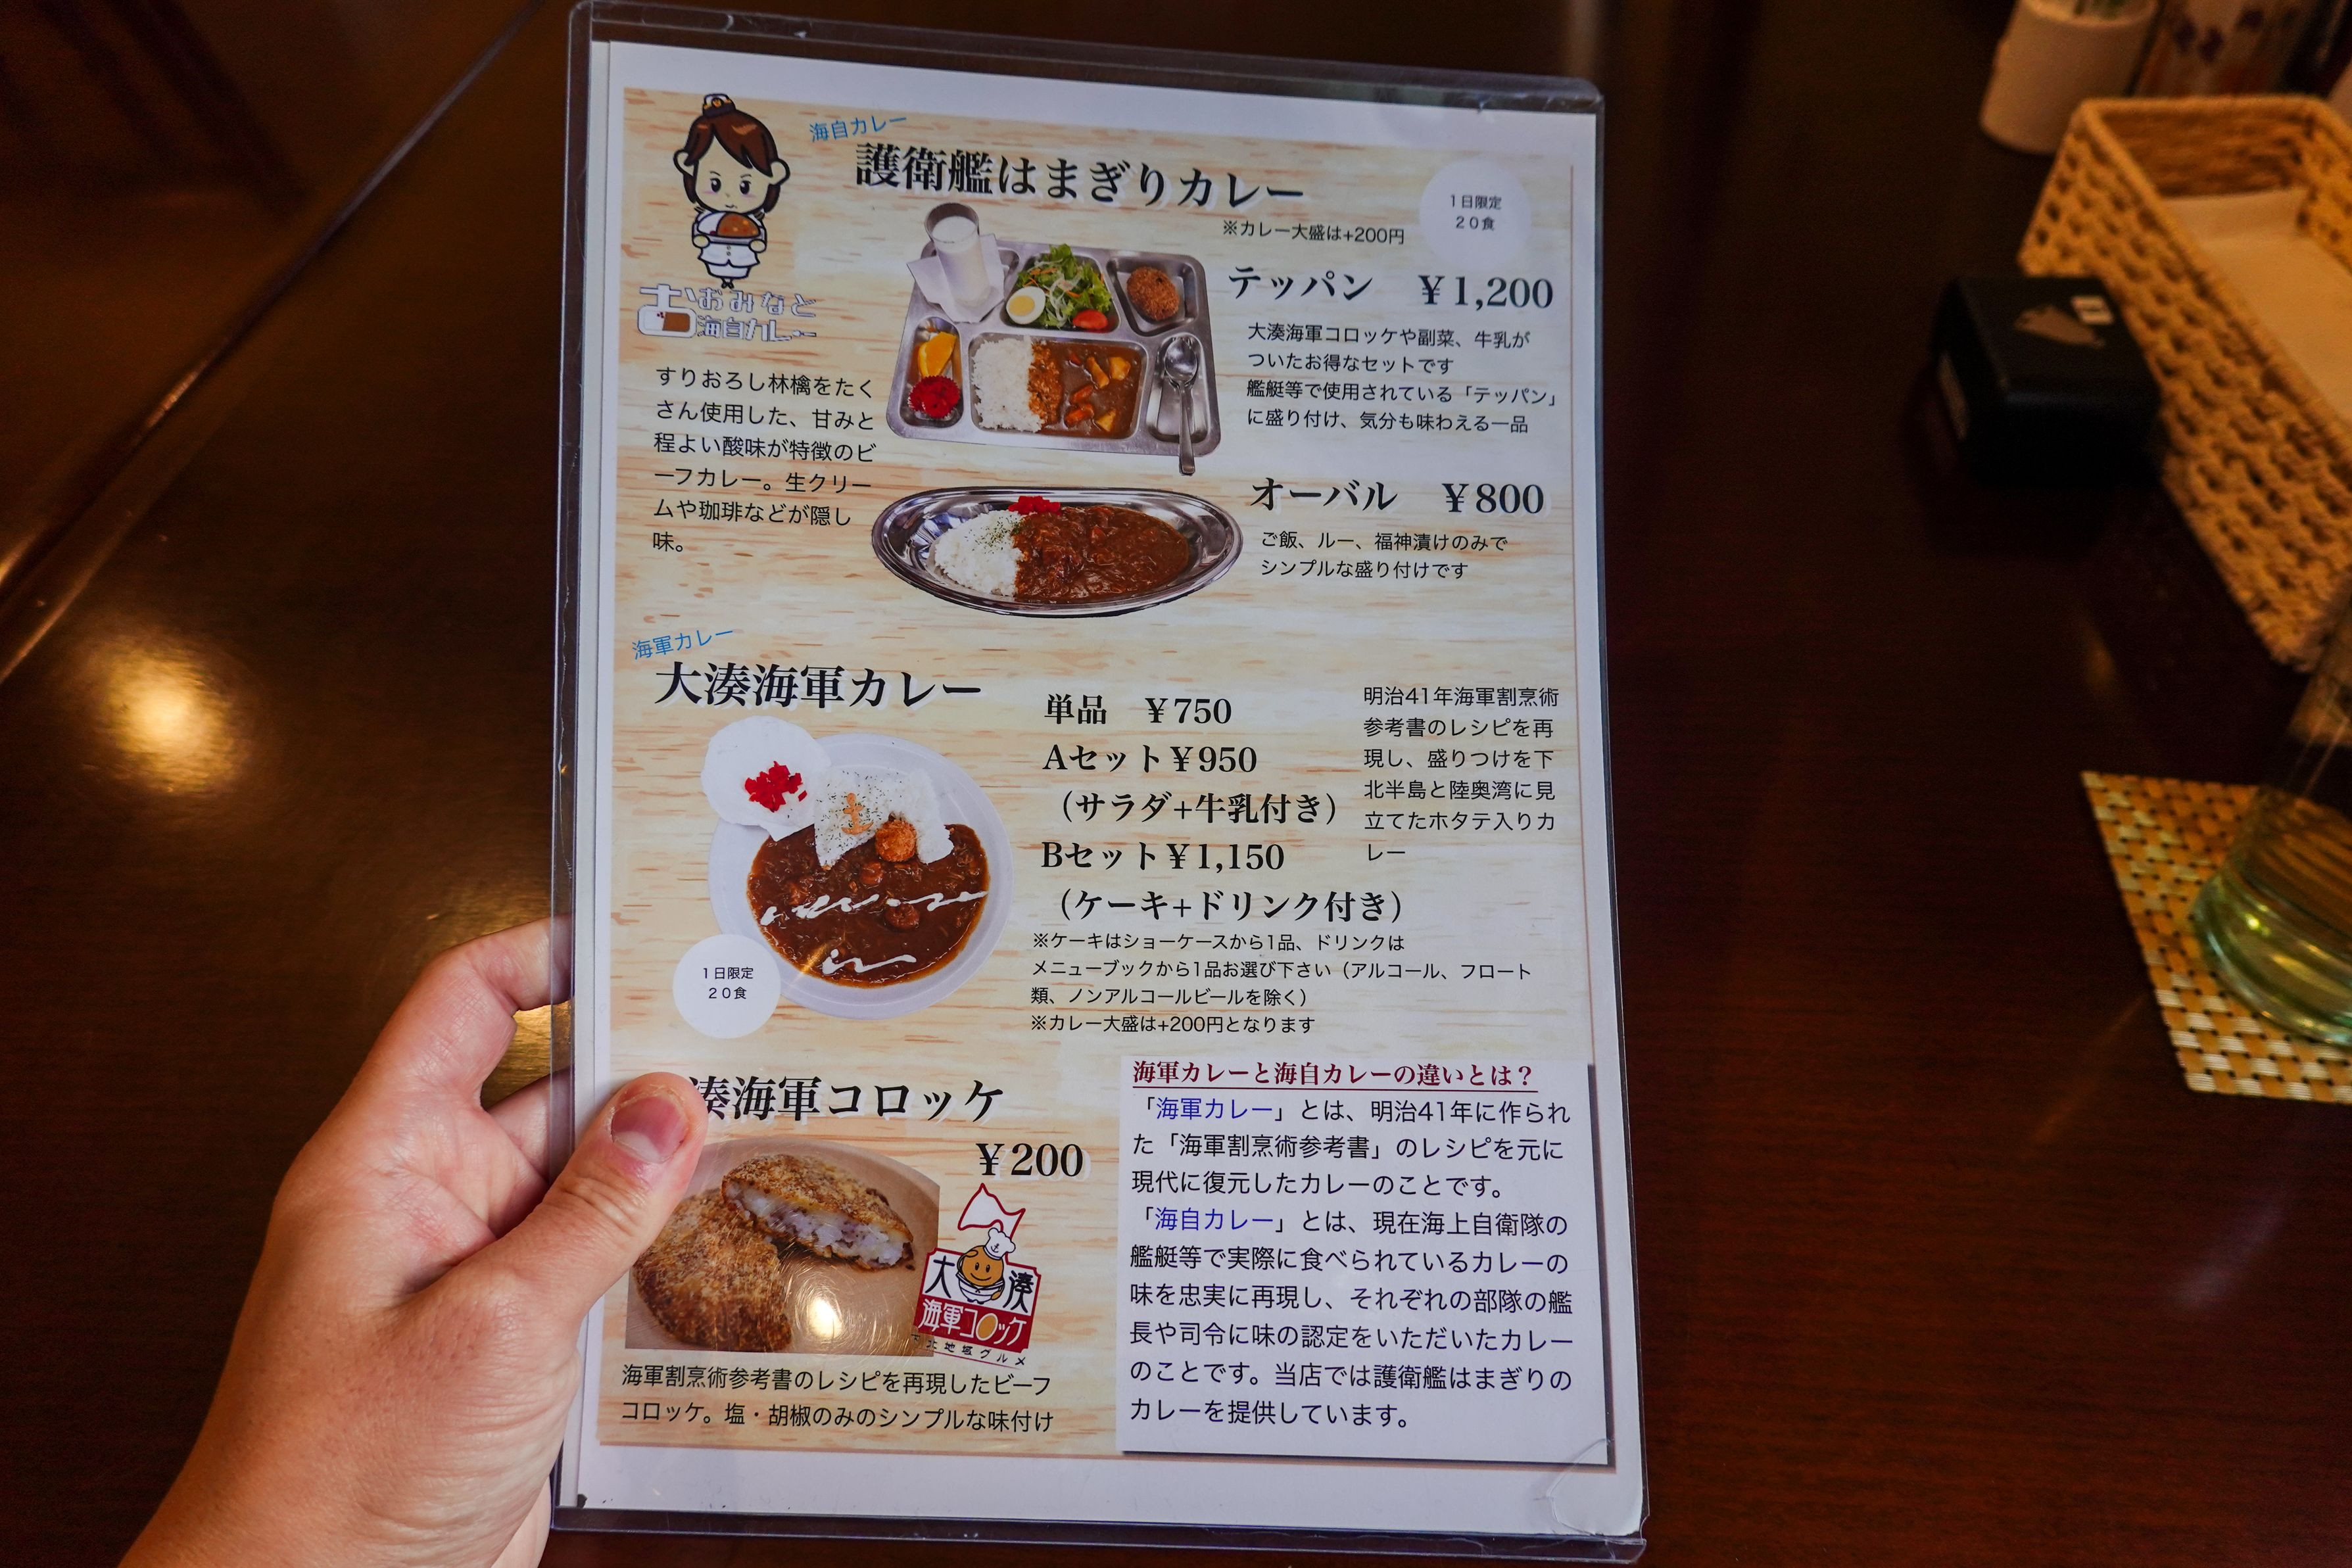 海自カレー
護衛艦はまぎりカレー
※カレー大盛は+200円
1日限定
20食
おみなと
海自カレー
すりおろし林檎をたく
さん使用した、甘みと
程よい酸味が特徴のビ
ーフカレー。生クリー
ムや珈琲などが隠し
味。
テッパン ￥1,200
大湊海軍コロッケや副菜、牛乳が
ついたお得なセットです
艦艇等で使用されている「テッパン」
に盛り付け、気分も味わえる一品
オーバル ￥800
ご飯、ルー、福神漬けのみで
シンプルな盛り付けです
海軍カレー
大湊海軍カレー
1日限定
20食
単品 ￥750
Aセット￥950
（サラダ+牛乳付き）
Bセット￥1,150
（ケーキ+ドリンク付き）
明治41年海軍割烹術
参考書のレシピを再
現し、盛りつけを下
北半島と陸奥湾に見
立てたホタテ入りカ
レー
※ケーキはショーケースから1品、ドリンクは
メニューブックから1品お選び下さい（アルコール、フロート
類、ノンアルコールビールを除く）
※カレー大盛は+200円となります
湊海軍コロッケ
￥200
大湊
海軍コロッケ
下北地域グルメ
海軍割烹術参考書のレシピを再現したビーフ
コロッケ。塩・胡椒のみのシンプルな味付け
海軍カレーと海自カレーの違いとは？
「海軍カレー」とは、明治41年に作られ
た「海軍割烹術参考書」のレシピを元に
現代に復元したカレーのことです。
「海自カレー」とは、現在海上自衛隊の
艦艇等で実際に食べられているカレーの
味を忠実に再現し、それぞれの部隊の艦
長や司令に味の認定をいただいたカレー
のことです。当店では護衛艦はまぎりの
カレーを提供しています。